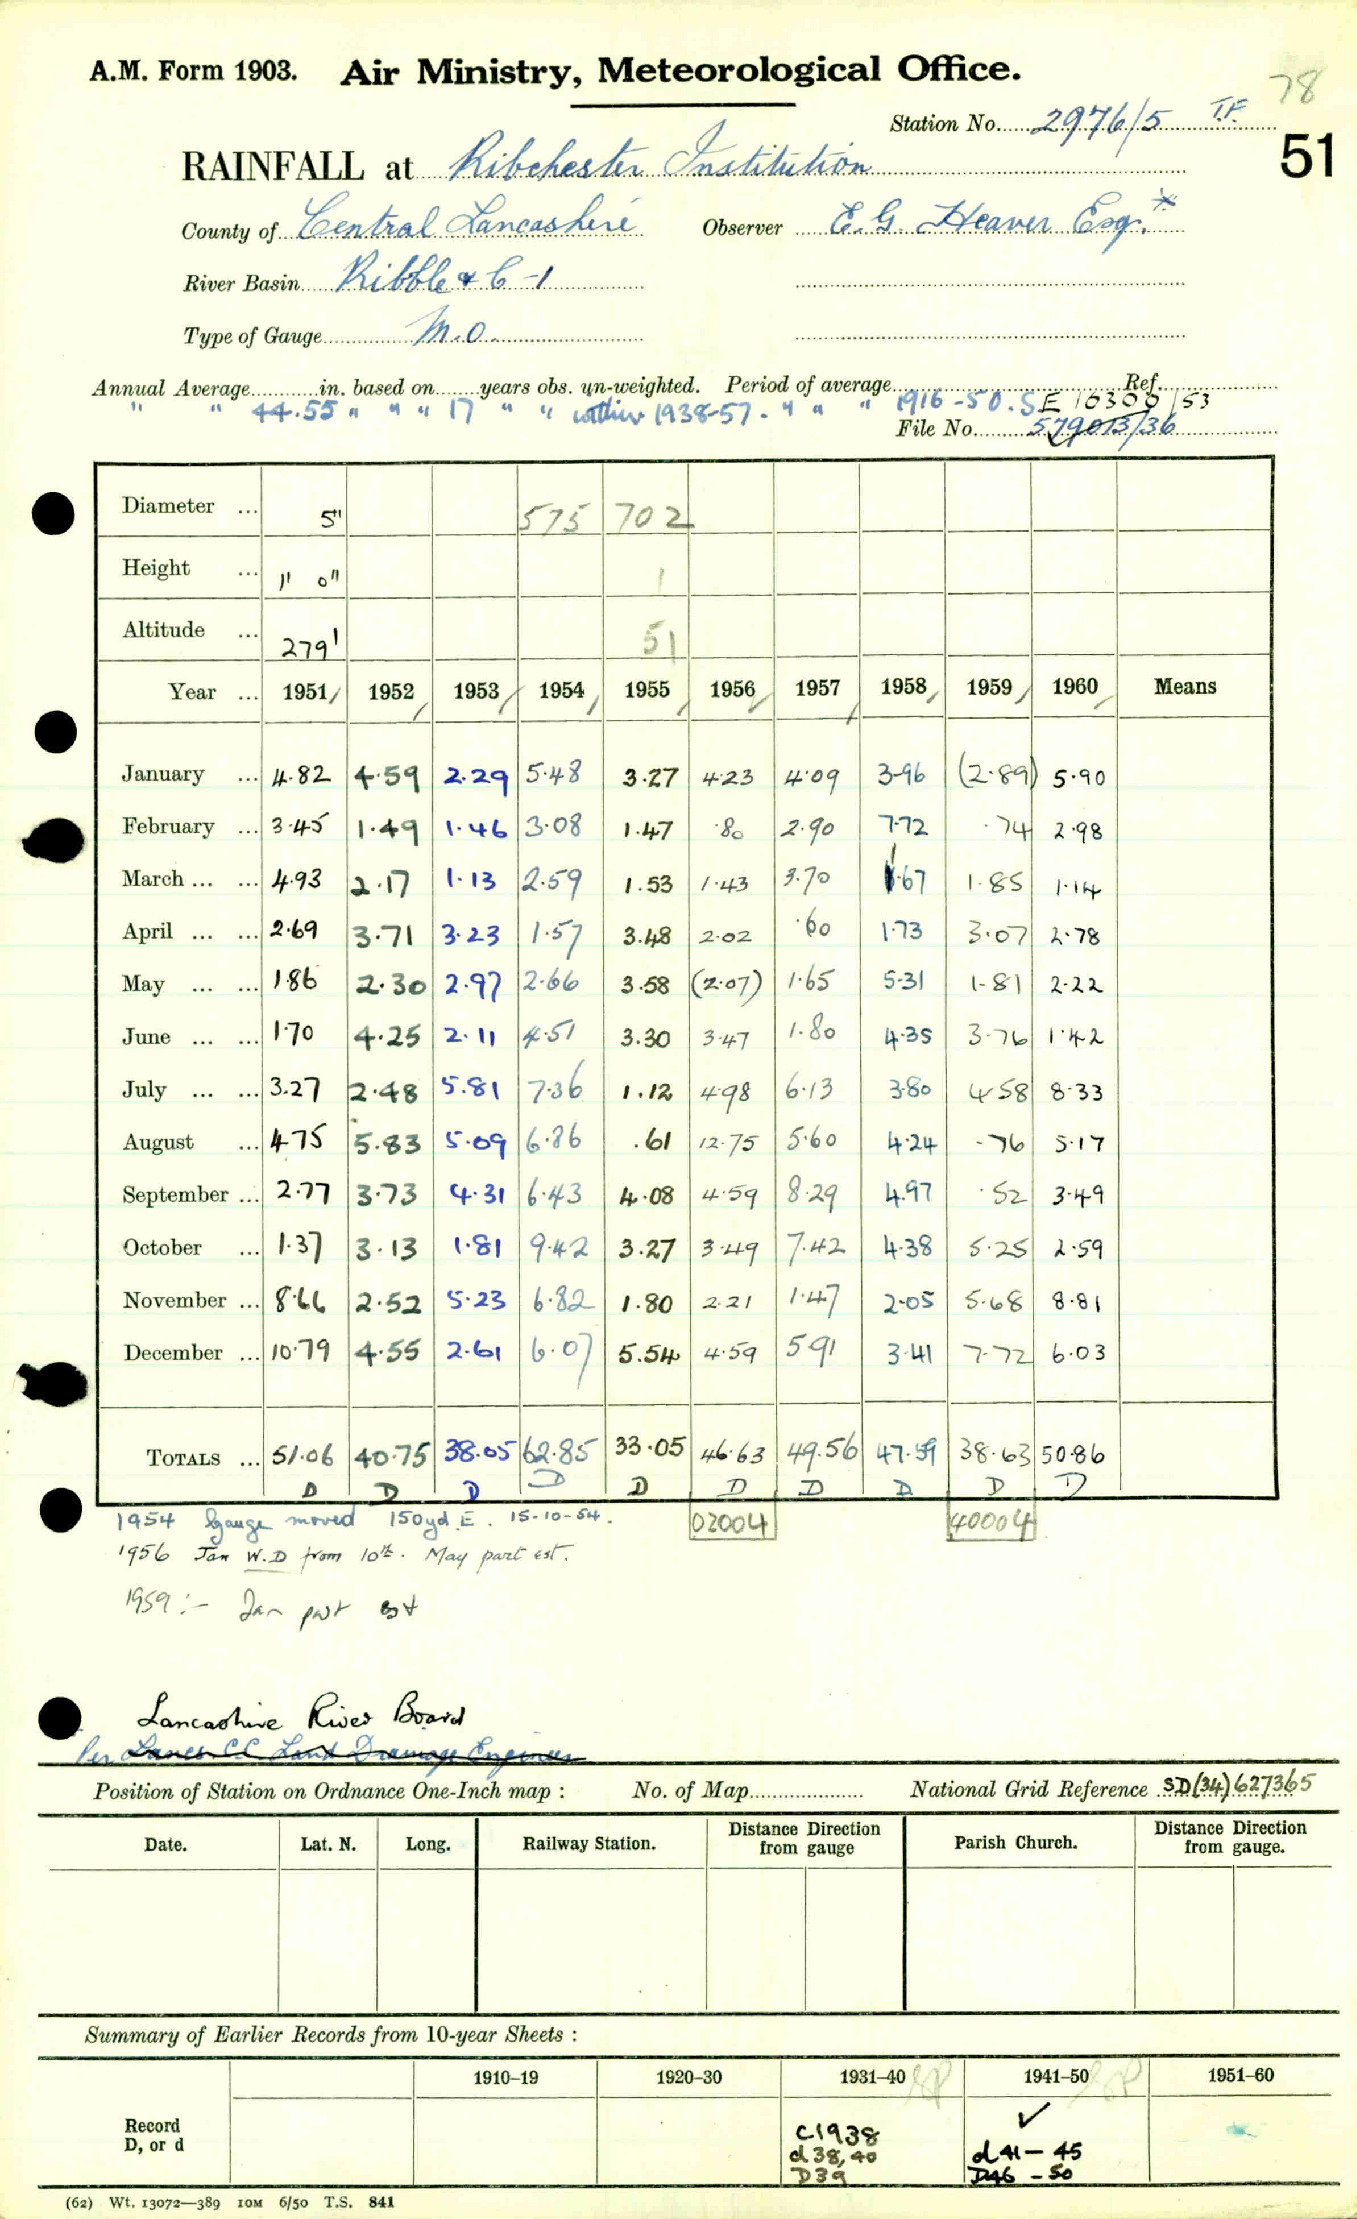 A.M. Form 1903. Air Ministry, Meteorological Office.
78
Station No. 2976/5 T.F.
51
RAINFALL at Ribchester Institution
County of Central Lancashire Observer E. G. Heaver Esq. *
River Basin Ribble & C-1
Type of Gauge M.O.
Annual Average in. based on years obs. un-weighted. Period of average Ref.
" " 44.55 " " " 17 " " within 1938-57. " " " 1916-50. SE 16300/53
File No. 579013/36
Diameter ... 5" 575 702
Height ... 1' 0" 1
Altitude ... 279' 51
Year ... 1951 1952 1953 1954 1955 1956 1957 1958 1959 1960 Means
January ... 4.82 4.59 2.29 5.48 3.27 4.23 4.09 3.96 (2.89) 5.90
February ... 3.45 1.49 1.46 3.08 1.47 .80 2.90 7.72 .74 2.98
March ... ... 4.93 2.17 1.13 2.59 1.53 1.43 3.70 1.67 1.85 1.14
April ... ... 2.69 3.71 3.23 1.57 3.48 2.02 .60 1.73 3.07 2.78
May ... ... 1.86 2.30 2.97 2.66 3.58 (2.07) 1.65 5.31 1.81 2.22
June ... ... 1.70 4.25 2.11 4.51 3.30 3.47 1.80 4.35 3.76 1.42
July ... ... 3.27 2.48 5.81 7.36 1.12 4.98 6.13 3.80 4.58 8.33
August ... 4.75 5.83 5.09 6.86 .61 12.75 5.60 4.24 .76 5.17
September ... 2.77 3.73 4.31 6.43 4.08 4.59 8.29 4.97 .52 3.49
October ... 1.37 3.13 1.81 9.42 3.27 3.49 7.42 4.38 5.25 2.59
November ... 8.66 2.52 5.23 6.82 1.80 2.21 1.47 2.05 5.68 8.81
December ... 10.79 4.55 2.61 6.07 5.54 4.59 5.91 3.41 7.72 6.03
TOTALS ... 51.06 40.75 38.05 62.85 33.05 46.63 49.56 47.59 38.63 50.86
D D D D D D D D D D
1954 Gauge moved 150yd. E. 15-10-54. 02004 40004
1956 Jan W.D from 10th. May part est.
1959:- Jan part est
Lancashire River Board
Per Lancs CC Land Drainage Engineer
Position of Station on Ordnance One-Inch map : No. of Map National Grid Reference SD(34)627365
Date. Lat. N. Long. Railway Station. Distance from Direction gauge Parish Church. Distance from Direction gauge.
Summary of Earlier Records from 10-year Sheets :
1910–19 1920–30 1931–40 1941–50 1951–60
Record
D, or d
C1938 ✓
d 38, 40 d 41 – 45
D39 D46 – 50
(62) Wt. 13072—389 10M 6/50 T.S. 841